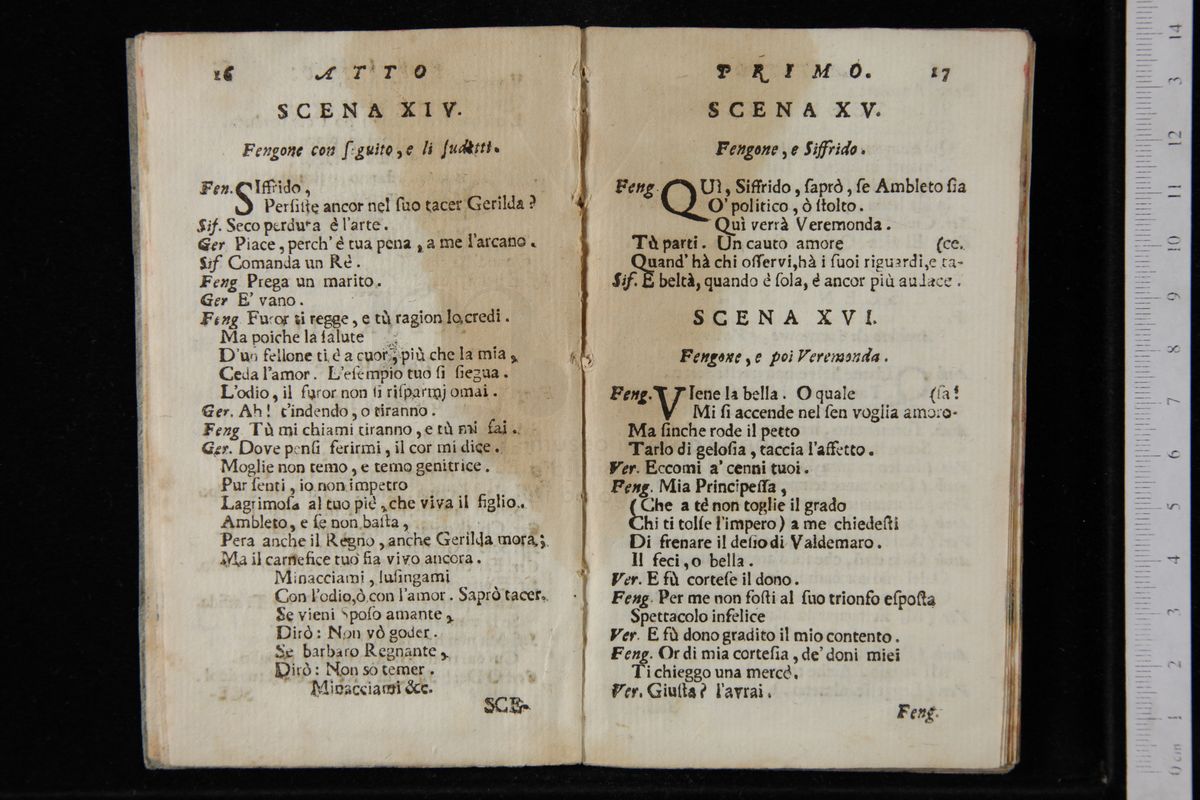 16 ATTO
SCENA XIV.
Fengone con ſeguito, e li ſudetti.
Fen. SIffrido,
Perſiſte ancor nel ſuo tacer Gerilda?
Sif. Seco perduta è l'arte.
Ger Piace, perch' è tua pena, a me l'arcano.
Sif Comanda un Rè.
Feng Prega un marito.
Ger E' vano.
Feng Furor ti regge, e tù ragion lo credi.
Ma poiche la ſalute
D'un fellone ti è a cuor, più che la mia,
Ceda l'amor. L'eſempio tuo ſi ſiegua.
L'odio, il furor non ſi riſparmj omai.
Ger. Ah! t'indendo, o tiranno.
Feng Tù mi chiami tiranno, e tù mi fai.
Ger. Dove penſi ferirmi, il cor mi dice.
Moglie non temo, e temo genitrice.
Pur ſenti, io non impetro
Lagrimoſa al tuo piè, che viva il figlio.
Ambleto, e ſe non baſta,
Pera anche il Regno, anche Gerilda mora;
Ma il carnefice tuo ſia vivo ancora.
Minacciami, luſingami
Con l'odio, ò con l'amor. Saprò tacer,
Se vieni ſpoſo amante,
Dirò: Non vò goder.
Se barbaro Regnante,
Dirò: Non so temer.
Minacciami &c.
SCE-
PRIMO. 17
SCENA XV.
Fengone, e Siffrido.
Feng QUì, Siffrido, ſaprò, ſe Ambleto ſia
O' politico, ò ſtolto.
Quì verrà Veremonda.
Tù parti. Un cauto amore (ce.
Quand' hà chi oſſervi, hà i ſuoi riguardi, e ta-
Sif. E beltà, quando è ſola, è ancor più audace.
SCENA XVI.
Fengone, e poi Veremonda.
Feng. VIene la bella. O quale (ſa!
Mi ſi accende nel ſen voglia amoro-
Ma ſinche rode il petto
Tarlo di geloſia, taccia l'affetto.
Ver. Eccomi a' cenni tuoi.
Feng. Mia Principeſſa,
(Che a tè non toglie il grado
Chi ti tolſe l'impero) a me chiedeſti
Di frenare il deſio di Valdemaro.
Il feci, o bella.
Ver. E fù corteſe il dono.
Feng. Per me non foſti al ſuo trionfo eſpoſta
Spettacolo infelice
Ver. E fù dono gradito il mio contento.
Feng. Or di mia corteſia, de' doni miei
Ti chieggo una mercè.
Ver. Giuſta? l'avrai.
Feng.